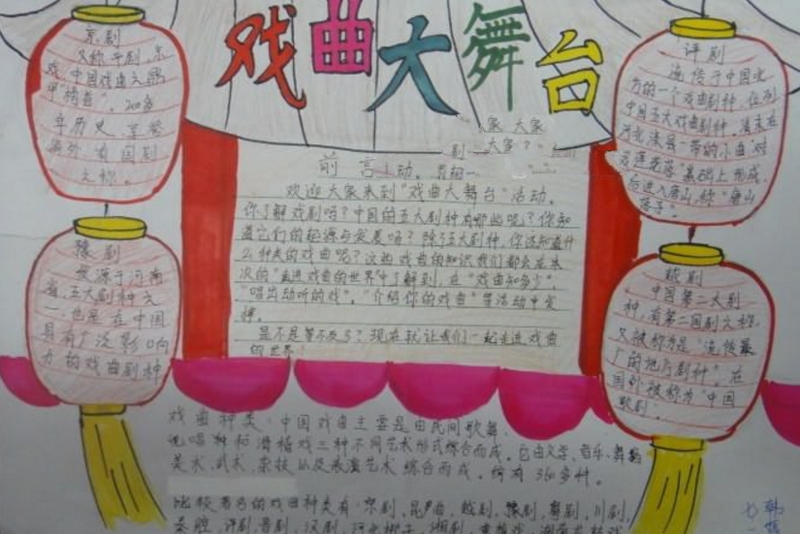 戏曲大舞台
京剧
又称平剧,京
戏,中国戏曲之鹏
甲"榜首",200多
年历史,享誉
海外,有国剧
之称。
评剧
流传于中国北
方的一个戏曲剧种,位列
中国五大戏曲剧种,清末在
河北滦县一带的小曲"对
口莲花落"基础上形成,
后进入唐山,称"唐山
落子"。
家 大家
剧 大家?
前言
欢迎大家来到"戏曲大舞台"活动。
你了解戏剧吗?中国的五大剧种有哪些呢?你知
道它们的起源与发展吗?除了五大剧种,你还知道什
么种类的戏曲呢?这些戏曲的知识我们都会在本
次的"走进戏曲的世界中了解到,在"戏曲知多少",
"唱出动听的戏","介绍你的戏曲"等活动中发
掘。
是不是等不及了?现在就让我们一起走进戏曲
的世界!
豫剧
起源于河南
省,五大剧种之
一,也是在中国
具有广泛影响
力的戏曲剧种
越剧
中国第二大剧
种,有第二国剧之称,
又被称为是"流传最
广的地方剧种",在
国外被称为"中国
歌剧。
戏曲种类:中国戏曲主要是由民间歌舞、
说唱和滑稽戏三种不同艺术形式综合而成。它由文学、音乐、舞蹈
美术、武术、杂技以及表演艺术综合而成,约有360多种。
比较著名的戏曲种类有:京剧,昆曲,越剧,豫剧,粤剧,川剧,
秦腔,评剧,晋剧,汉剧,河北梆子,湘剧,黄梅戏,湖南花鼓戏